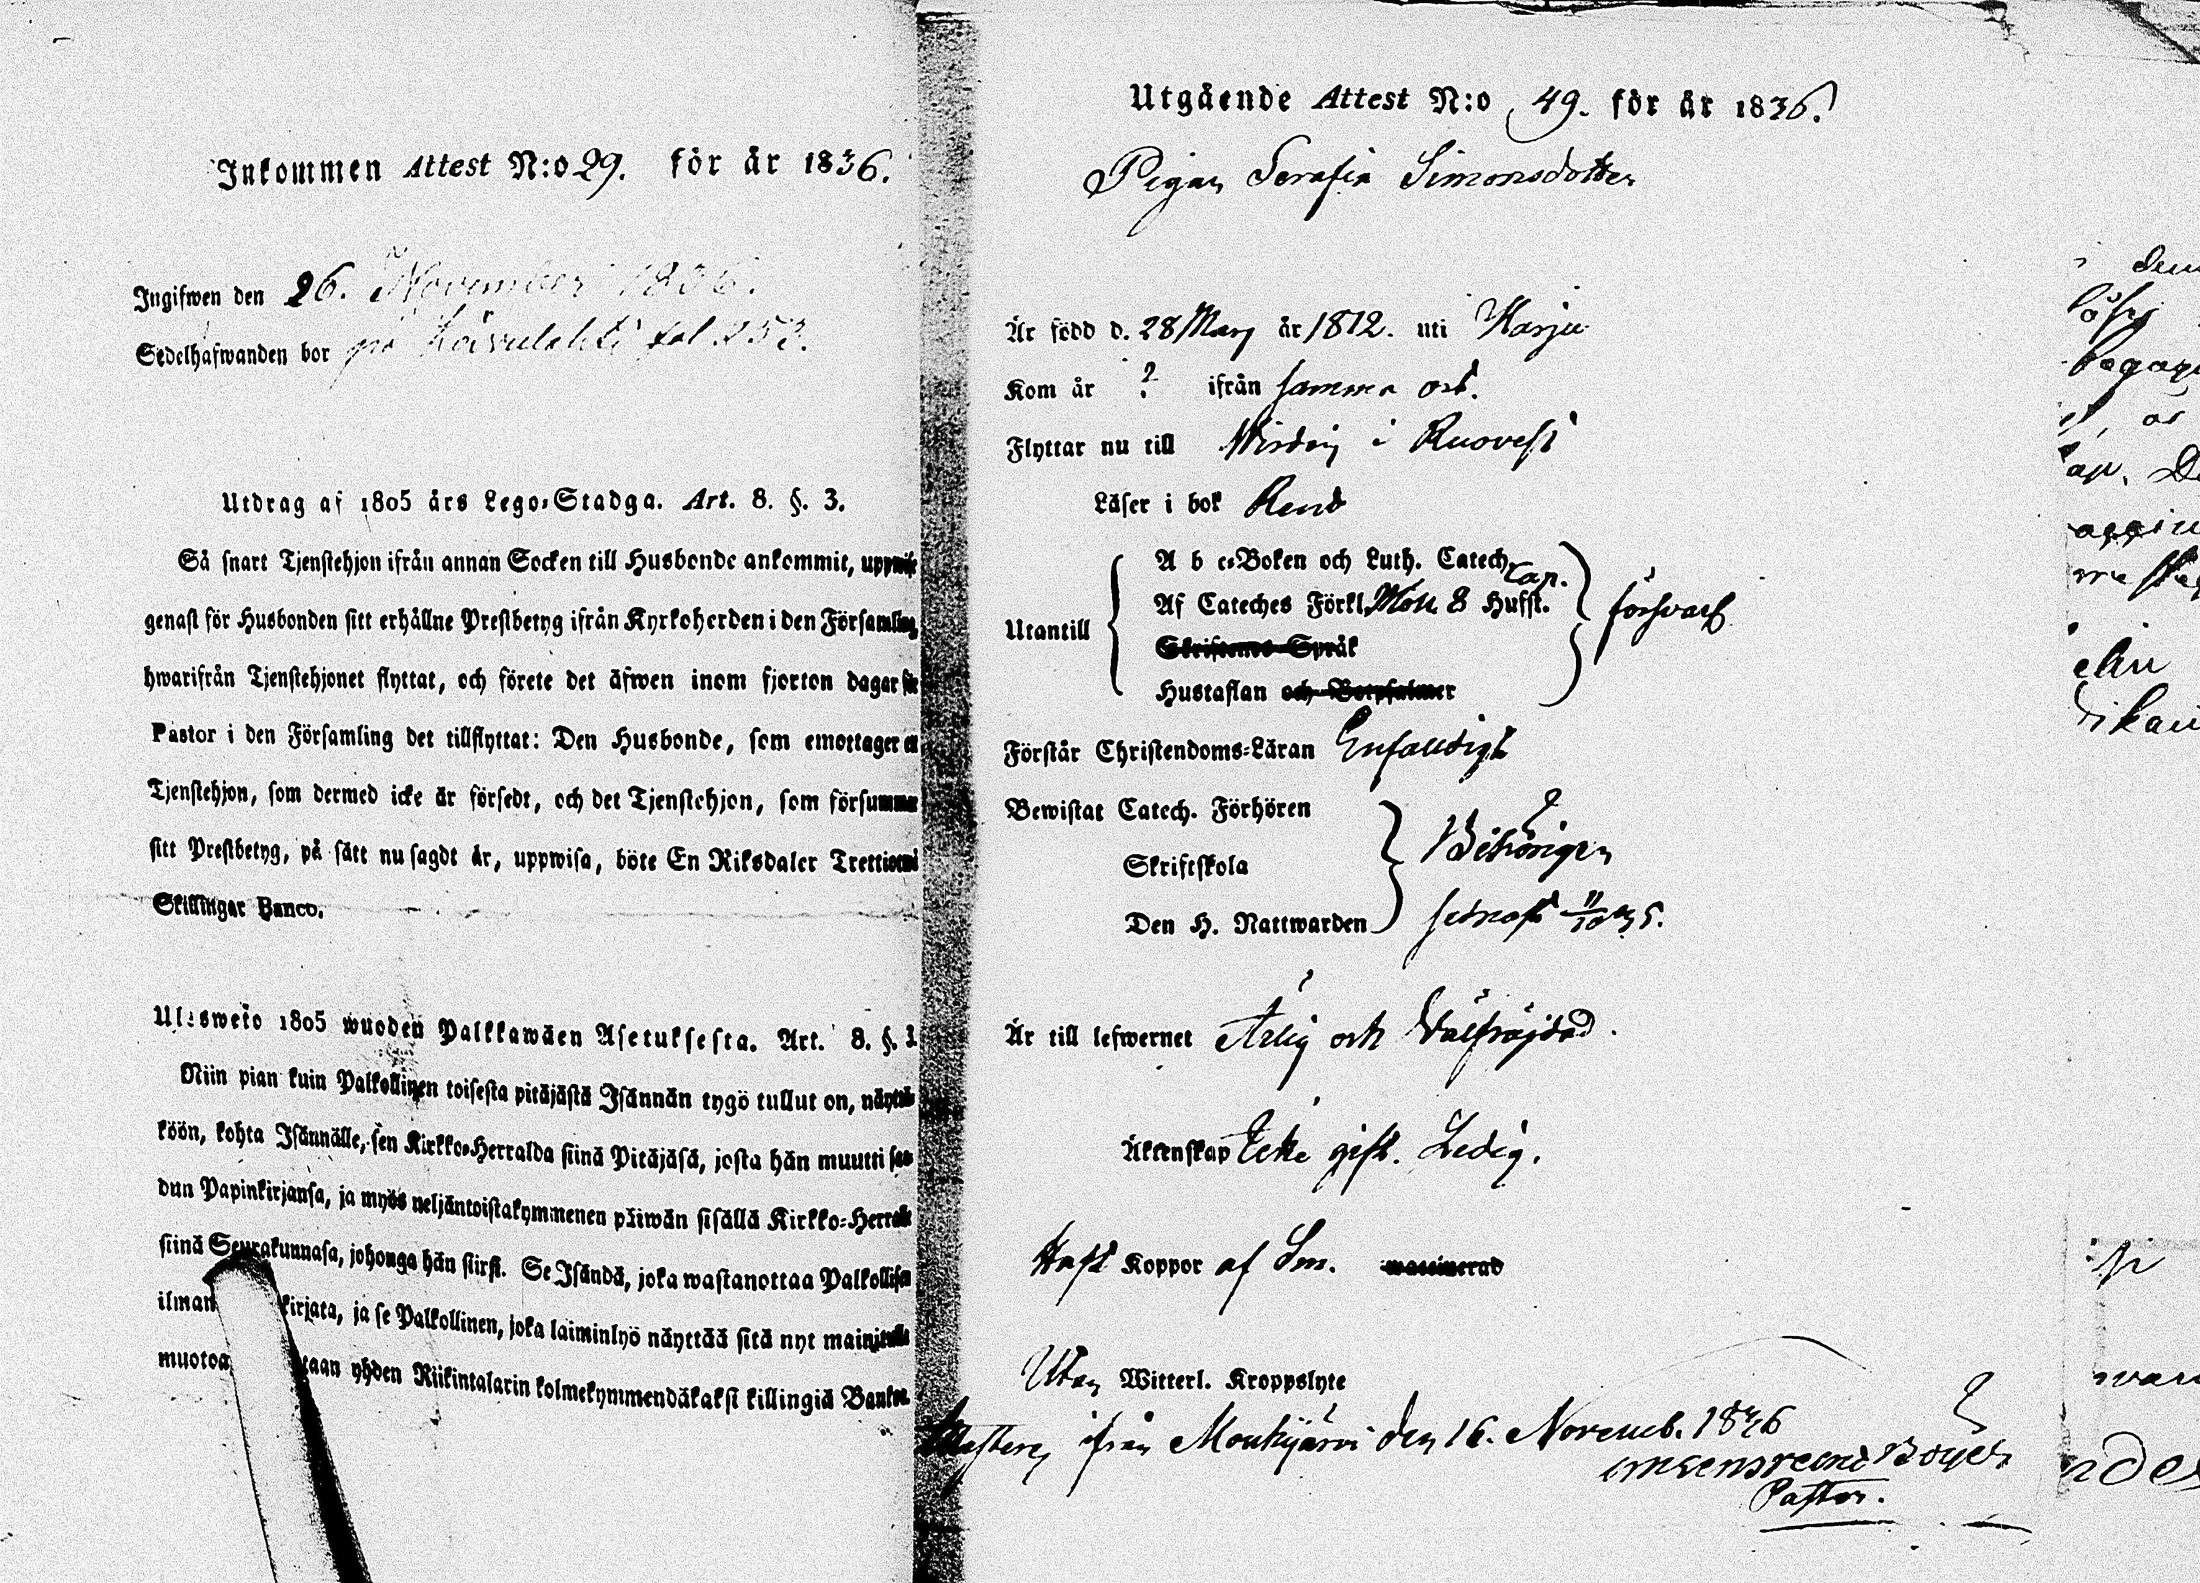 Inkommen Attest N:o 29. för år 1836.
Ingifwen den 26. November 1836.
Sedelhafwanden bor på fol. 253.
Utdrag af 1805 års Lego-Stadga. Art. 8. §. 3.
Så snart Tjenstehjon ifrån annan Socken till Husbonde ankommit, uppwise
genast för Husbonden sitt erhållne Prestbetyg ifrån Kyrkoherden i den Församling
hwarifrån Tjenstehjonet flyttat, och förete det äfwen inom fjorton dagar för
Pastor i den Församling det tillflyttat: Den Husbonde, som emottager et
Tjenstehjon, som dermed icke är försedt, och det Tjenstehjon, som försummar
sitt Prestbetyg, på sätt nu sagdt är, uppwisa, böte En Riksdaler Trettiotwå
Skillingar Banco.
Ulosweto 1805 wuoden Palkkawäen Asetuksesta. Art. 8. §. 3
Niin pian kuin Palkollinen toisesta pitäjästä Isännän tygö tullut on, näyttä-
köön, kohta Isännälle, sen Kirkko-Herralda siinä Pitäjäsä, josta hän muutti saa-
dun Papinkirjansa, ja myös neljäntoistakymmenen päiwän sisällä Kirkko-Herralle
siinä Seurakunnasa, johonga hän siirsi. Se Isändä, joka wastanottaa Palkollisen
ilman kirjata, ja se Palkollinen, joka laiminlyö näyttää sitä nyt mainitulla
muotoa taan yhden Riikintalarin kolmekymmendäkaksi killingiä Bankos.
Utgående Attest N:o 49. för år 1836.
Pigan Serafia Simonsdotter
Är född d. 28 Mars år 1812. uti Karju
Kom år ? ifrån samma ort.
Flyttar nu till Wirdois i Ruovesi
Läser i bok Rent
A b c-Boken och Luth. Catech.
Af Cateches Förkl. Möll. 8 Hufst. Cap.
Utantill försvarl.
Skriftenes Språk
Hustaflan och Botpsalmer
Förstår Christendoms-Läran Enfaldigt
Bewistat Catech. Förhören
Skriftskola Behörigen
Den H. Nattwarden senast 11/10 35.
Är till lefwernet Ärlig och Välfräjdad.
Äktenskap Icke gift. Ledig.
Haft Koppor af Sm. waccinerad
Utan Witterl. Kroppslyte
ifrån Mouhijärvi den 16. Novemb. 1836
Pastor.